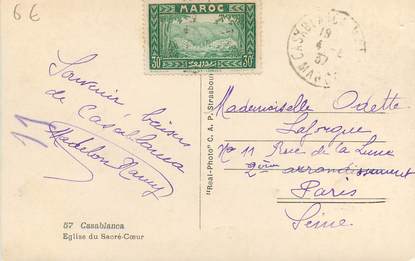 6€
MAROC
30 30
CASABLANCA
19
4
37
MAROC
Souvenir baisers
de Casablanca
Madelon Nanny
11
57 Casablanca
Eglise du Sacré-Cœur
"Real-Photo" C. A. P. Strasbourg
Mademoiselle Odette
Laforgue
No 11 Rue de la Lune
2ème arrondissement
Paris
Seine